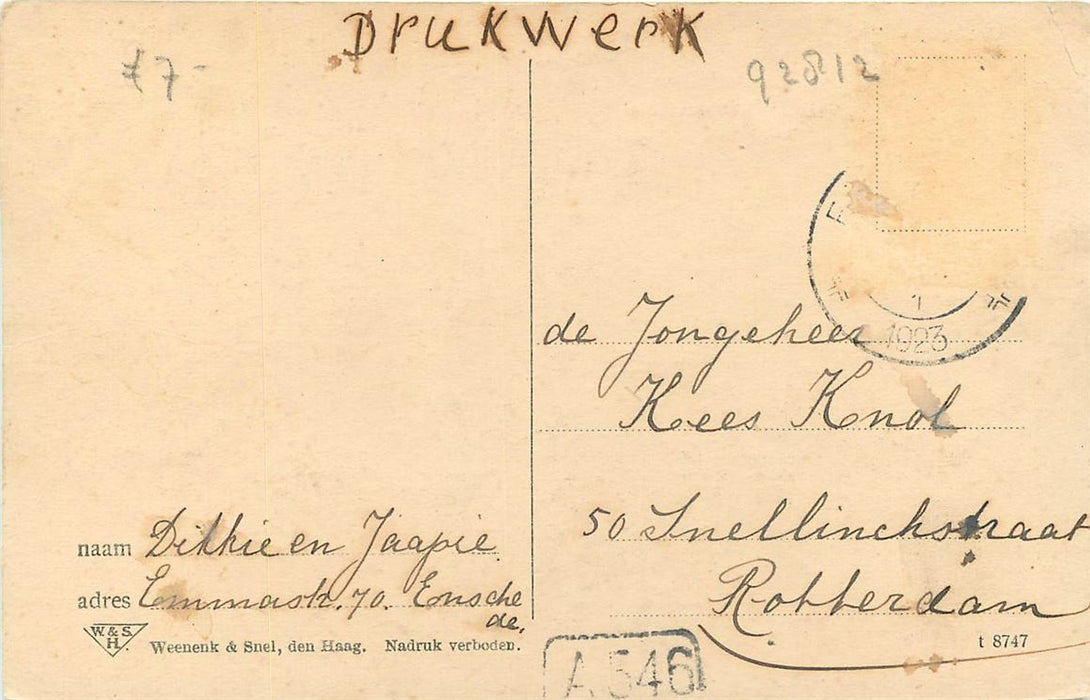 Drukwerk
£7-
92812
1
1923
de Jongeheer
Kees Knol
50 Snellinckstraat
Rotterdam
naam Dikkie en Jaapie
adres Emmastr. 70. Ensche
de.
W. & S.
H.
Weenenk & Snel, den Haag. Nadruk verboden.
t 8747
A 546